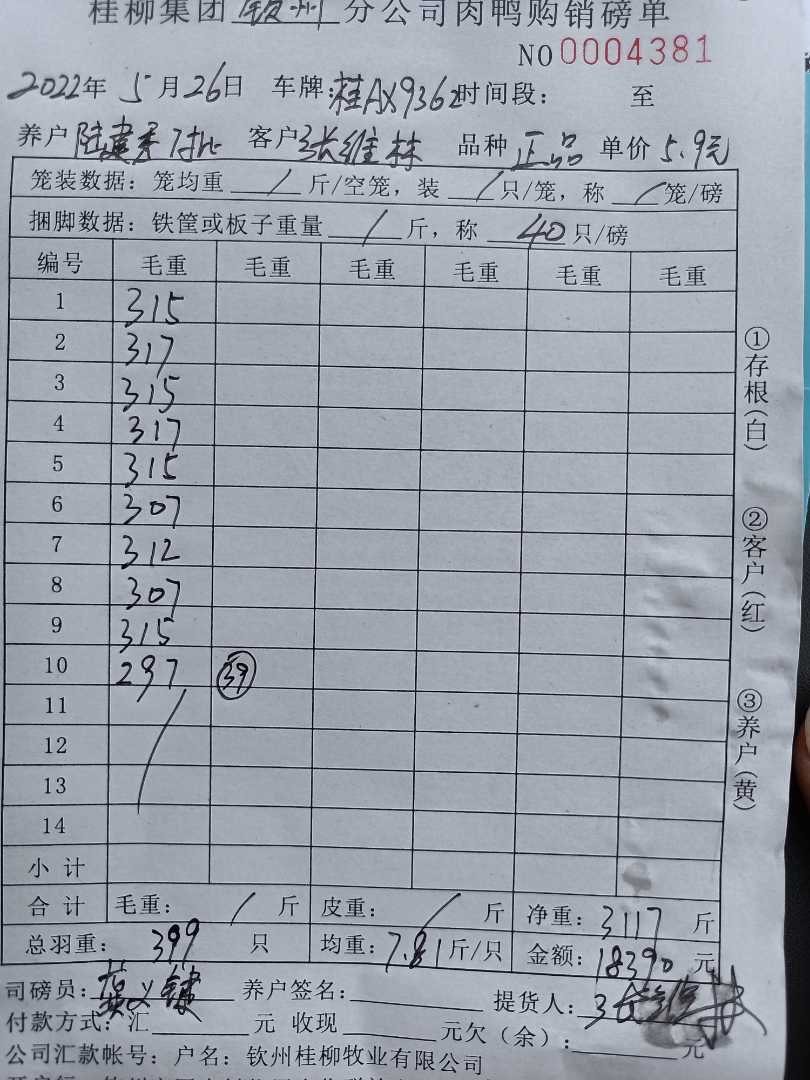 桂柳集团 钦州 分公司肉鸭购销磅单
NO 0004381
2022年 5月26日 车牌:桂AX9362 时间段: 至
养户 陆建 对比 客户 张维林 品种 正品 单价 5.9元
笼装数据:笼均重 / 斤/空笼,装 / 只/笼,称 / 笼/磅
捆脚数据:铁筐或板子重量 / 斤,称 40 只/磅
编号 毛重 毛重 毛重 毛重 毛重 毛重
1 315
2 317
3 315
4 317
5 315
6 307
7 312
8 307
9 315
10 297 39
11
12
13
14
小计
合计 毛重: / 斤 皮重: / 斤 净重: 3117 斤
总羽重: 399 只 均重: 7.81斤/只 金额: 18390 元
司磅员: 养户签名: 提货人: 张维林
付款方式:汇 元 收现 元欠(余): 元
公司汇款帐号:户名:钦州桂柳牧业有限公司
①存根(白)
②客户(红)
③养户(黄)